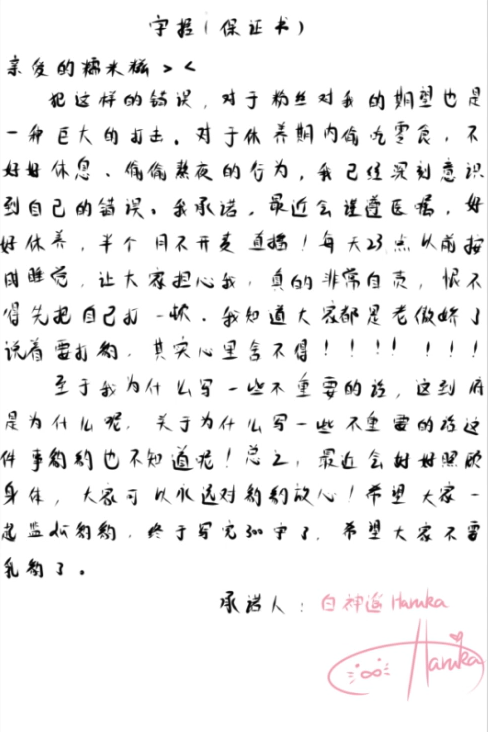 字报(保证书)
亲爱的糯米糍> <
犯这样的错误，对于粉丝对我的期望也是
一种巨大的打击。对于休养期内偷吃零食，不
好好休息、偷偷熬夜的行为，我已经深刻意识
到自己的错误。我承诺，最近会谨遵医嘱，好
好休养，半个月不开麦直播！每天23点以前按
时睡觉，让大家担心我，真的非常自责，恨不
得先把自己打一顿．我知道大家都是老傲娇了
说着要打豹，其实心里舍不得！！！！！！！
至于我为什么写一些不重要的话，这到底
是为什么呢，关于为什么写一些不重要的话这
件事豹豹也不知道呢！总之，最近会好好照顾
身体，大家可以永远对豹豹放心！希望大家一
起监督豹豹，终于写完300字了，希望大家不要
乳豹了。
承诺人：白神遥Haruka
Haruka